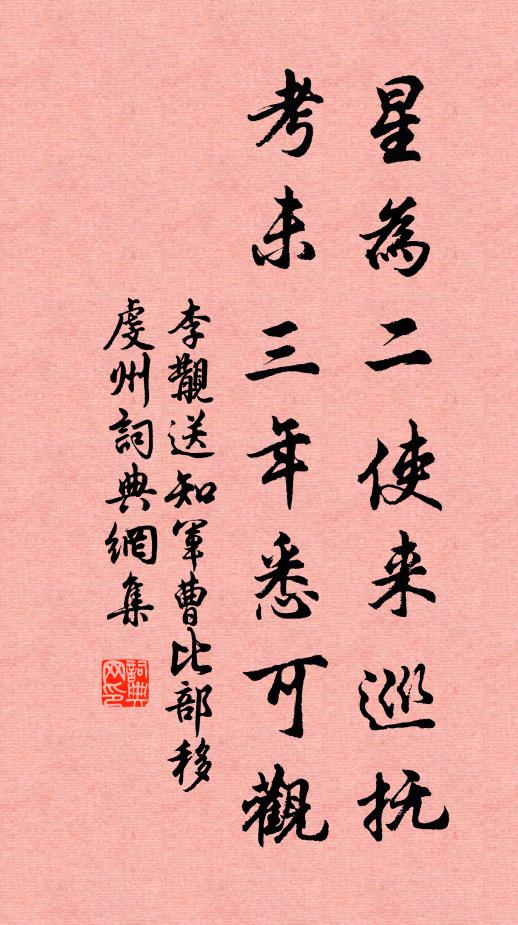 星為二使来巡抚
考未三年悉可觀
李覯送知軍曹比部移
虔州詞典網集
詞典
网印